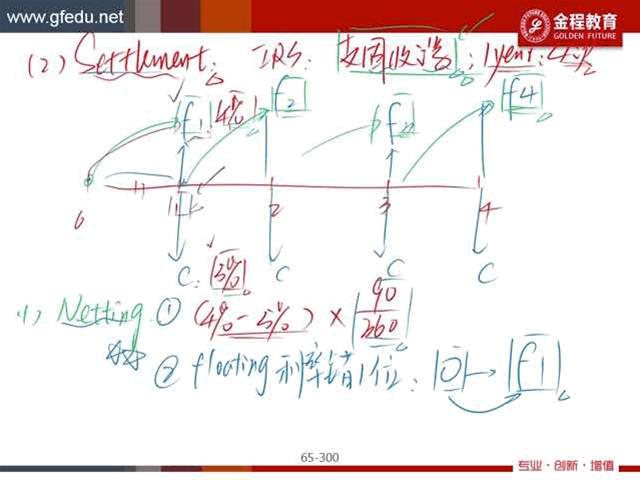 www.gfedu.net 金程教育
GOLDEN FUTURE
(2) Settlement: IRS: 支固收浮; 1year:
f1 4% f2 f3 f4
0 1 2 3 4
C: 3% C C C
(1) Netting ① (4% - 3%) × 90/360
② floating 利率错1位: 0 → f1
65-300
专业·创新·增值